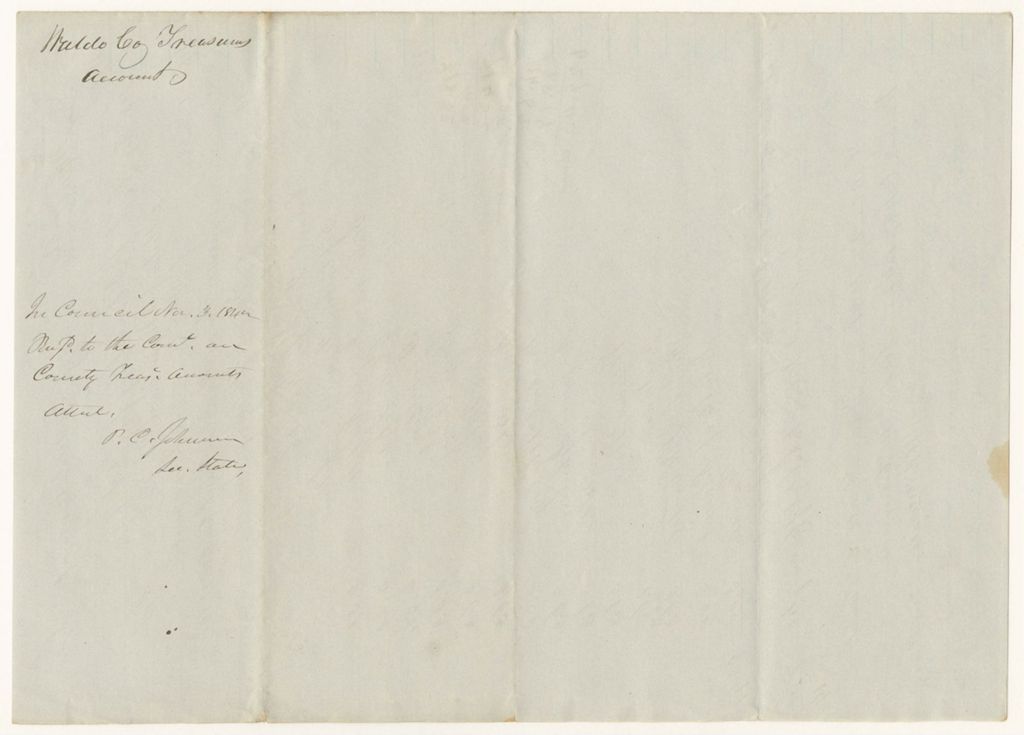 Waldo Co Treasurers
Account
In Council Nov. 3. 1842
Ref. to the Comt. on
County Treas. Accounts
Attest,
P. C. Johnson
Sec. State,